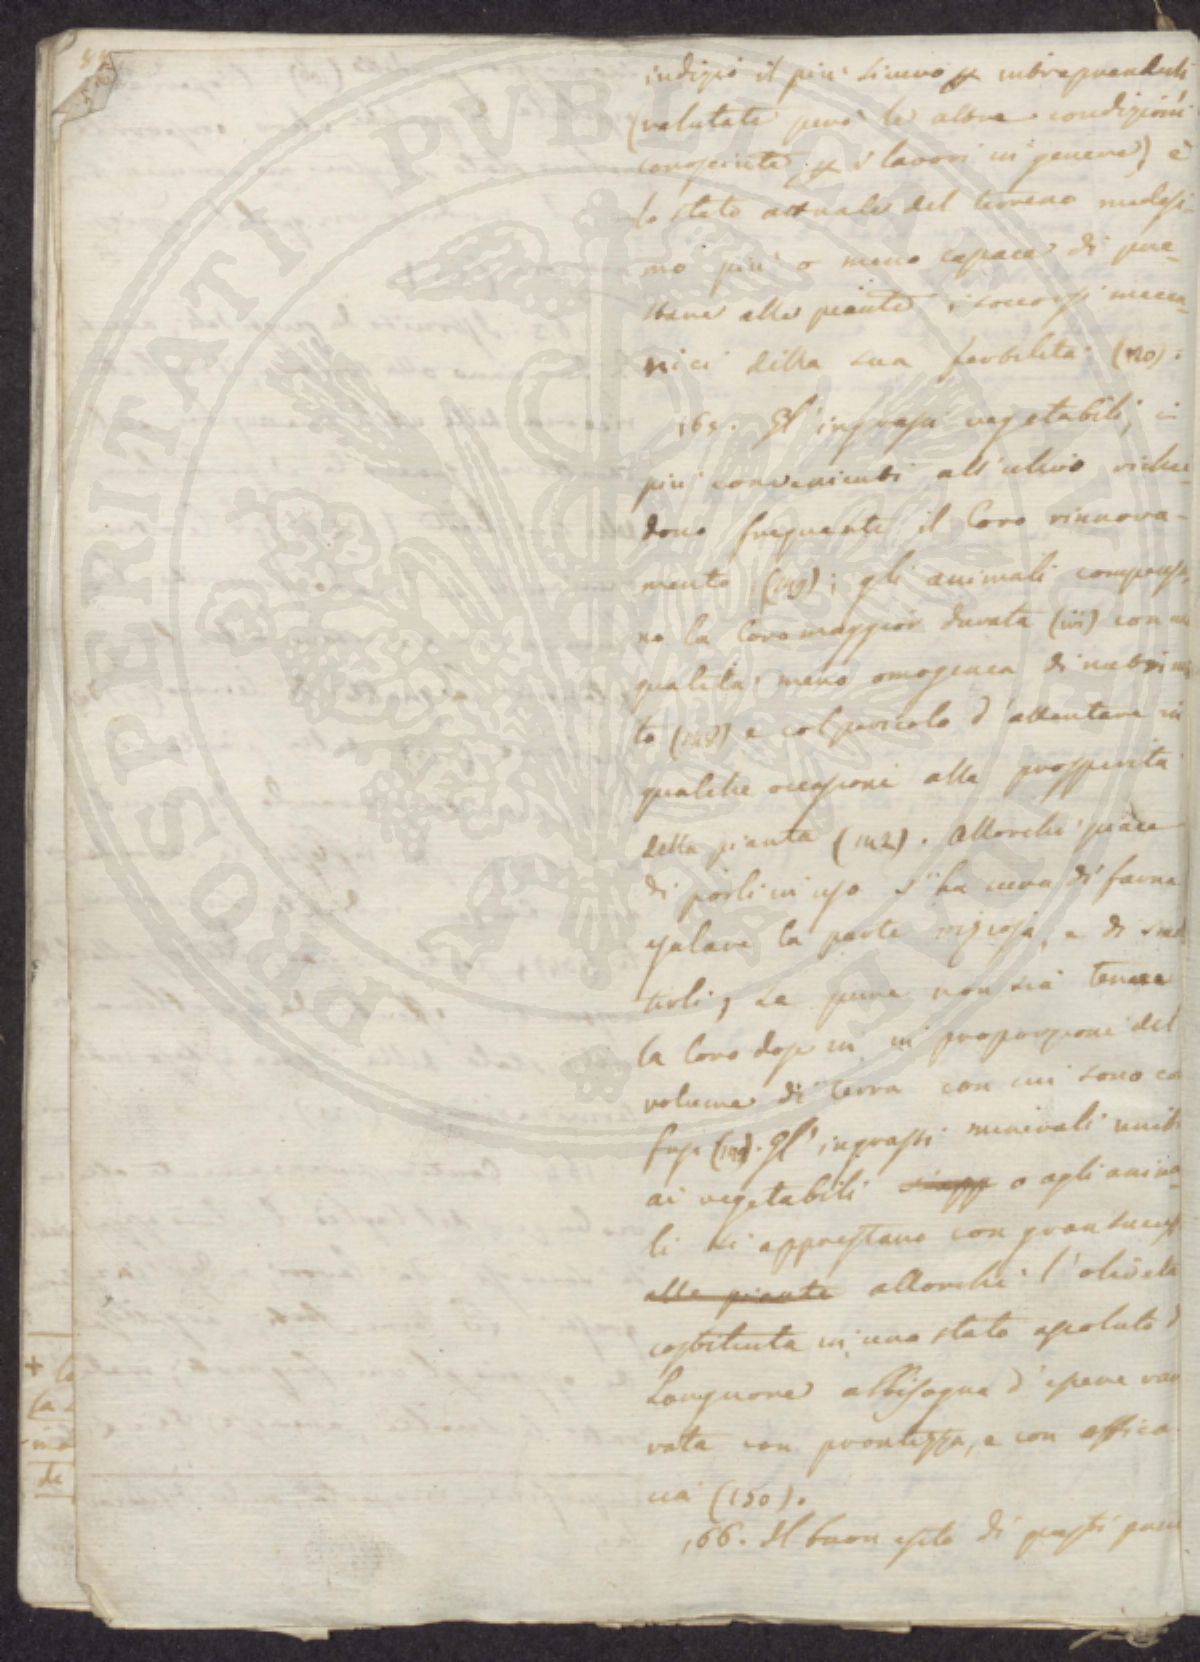 indizio il più sicuro p intraprenderli
(valutate però le altre condizioni
conosciute p i lavori in genere) è
lo stato attuale del terreno medesi-
mo più o meno capace di pre-
stare alle piante i soccorsi mecca-
nici della sua fertilità (120).
165. Gl'ingrassi vegetabili, i
più convenienti all'ulivo richie-
dono frequente il loro rinnova-
mento (149); gli animali compensa-
no la loro maggior durata (151) con una
qualità meno omogenea di nutrimen-
to (148) e col pericolo d'attentare in
qualche occasione alla prosperità
della pianta (142). Allorchè piace
di porli in uso s'ha cura di farne
esalare la parte viziosa, e di
se pure non sia tenue
la loro dose in in proporzione del
volume di terra con cui sono con
fusi (149). Gl'ingrassi minerali uniti
ai vegetabili o agli anima-
li si apprestano con gran successo
alle piante allorchè l'oliveta
costituita in uno stato assoluto di
languore abbisogna d'essere rav
vata con prontezza, e con effica
cia (150).
166. Il buon esito di questi
PROSPERITATI PUBLICAE
+ la
de